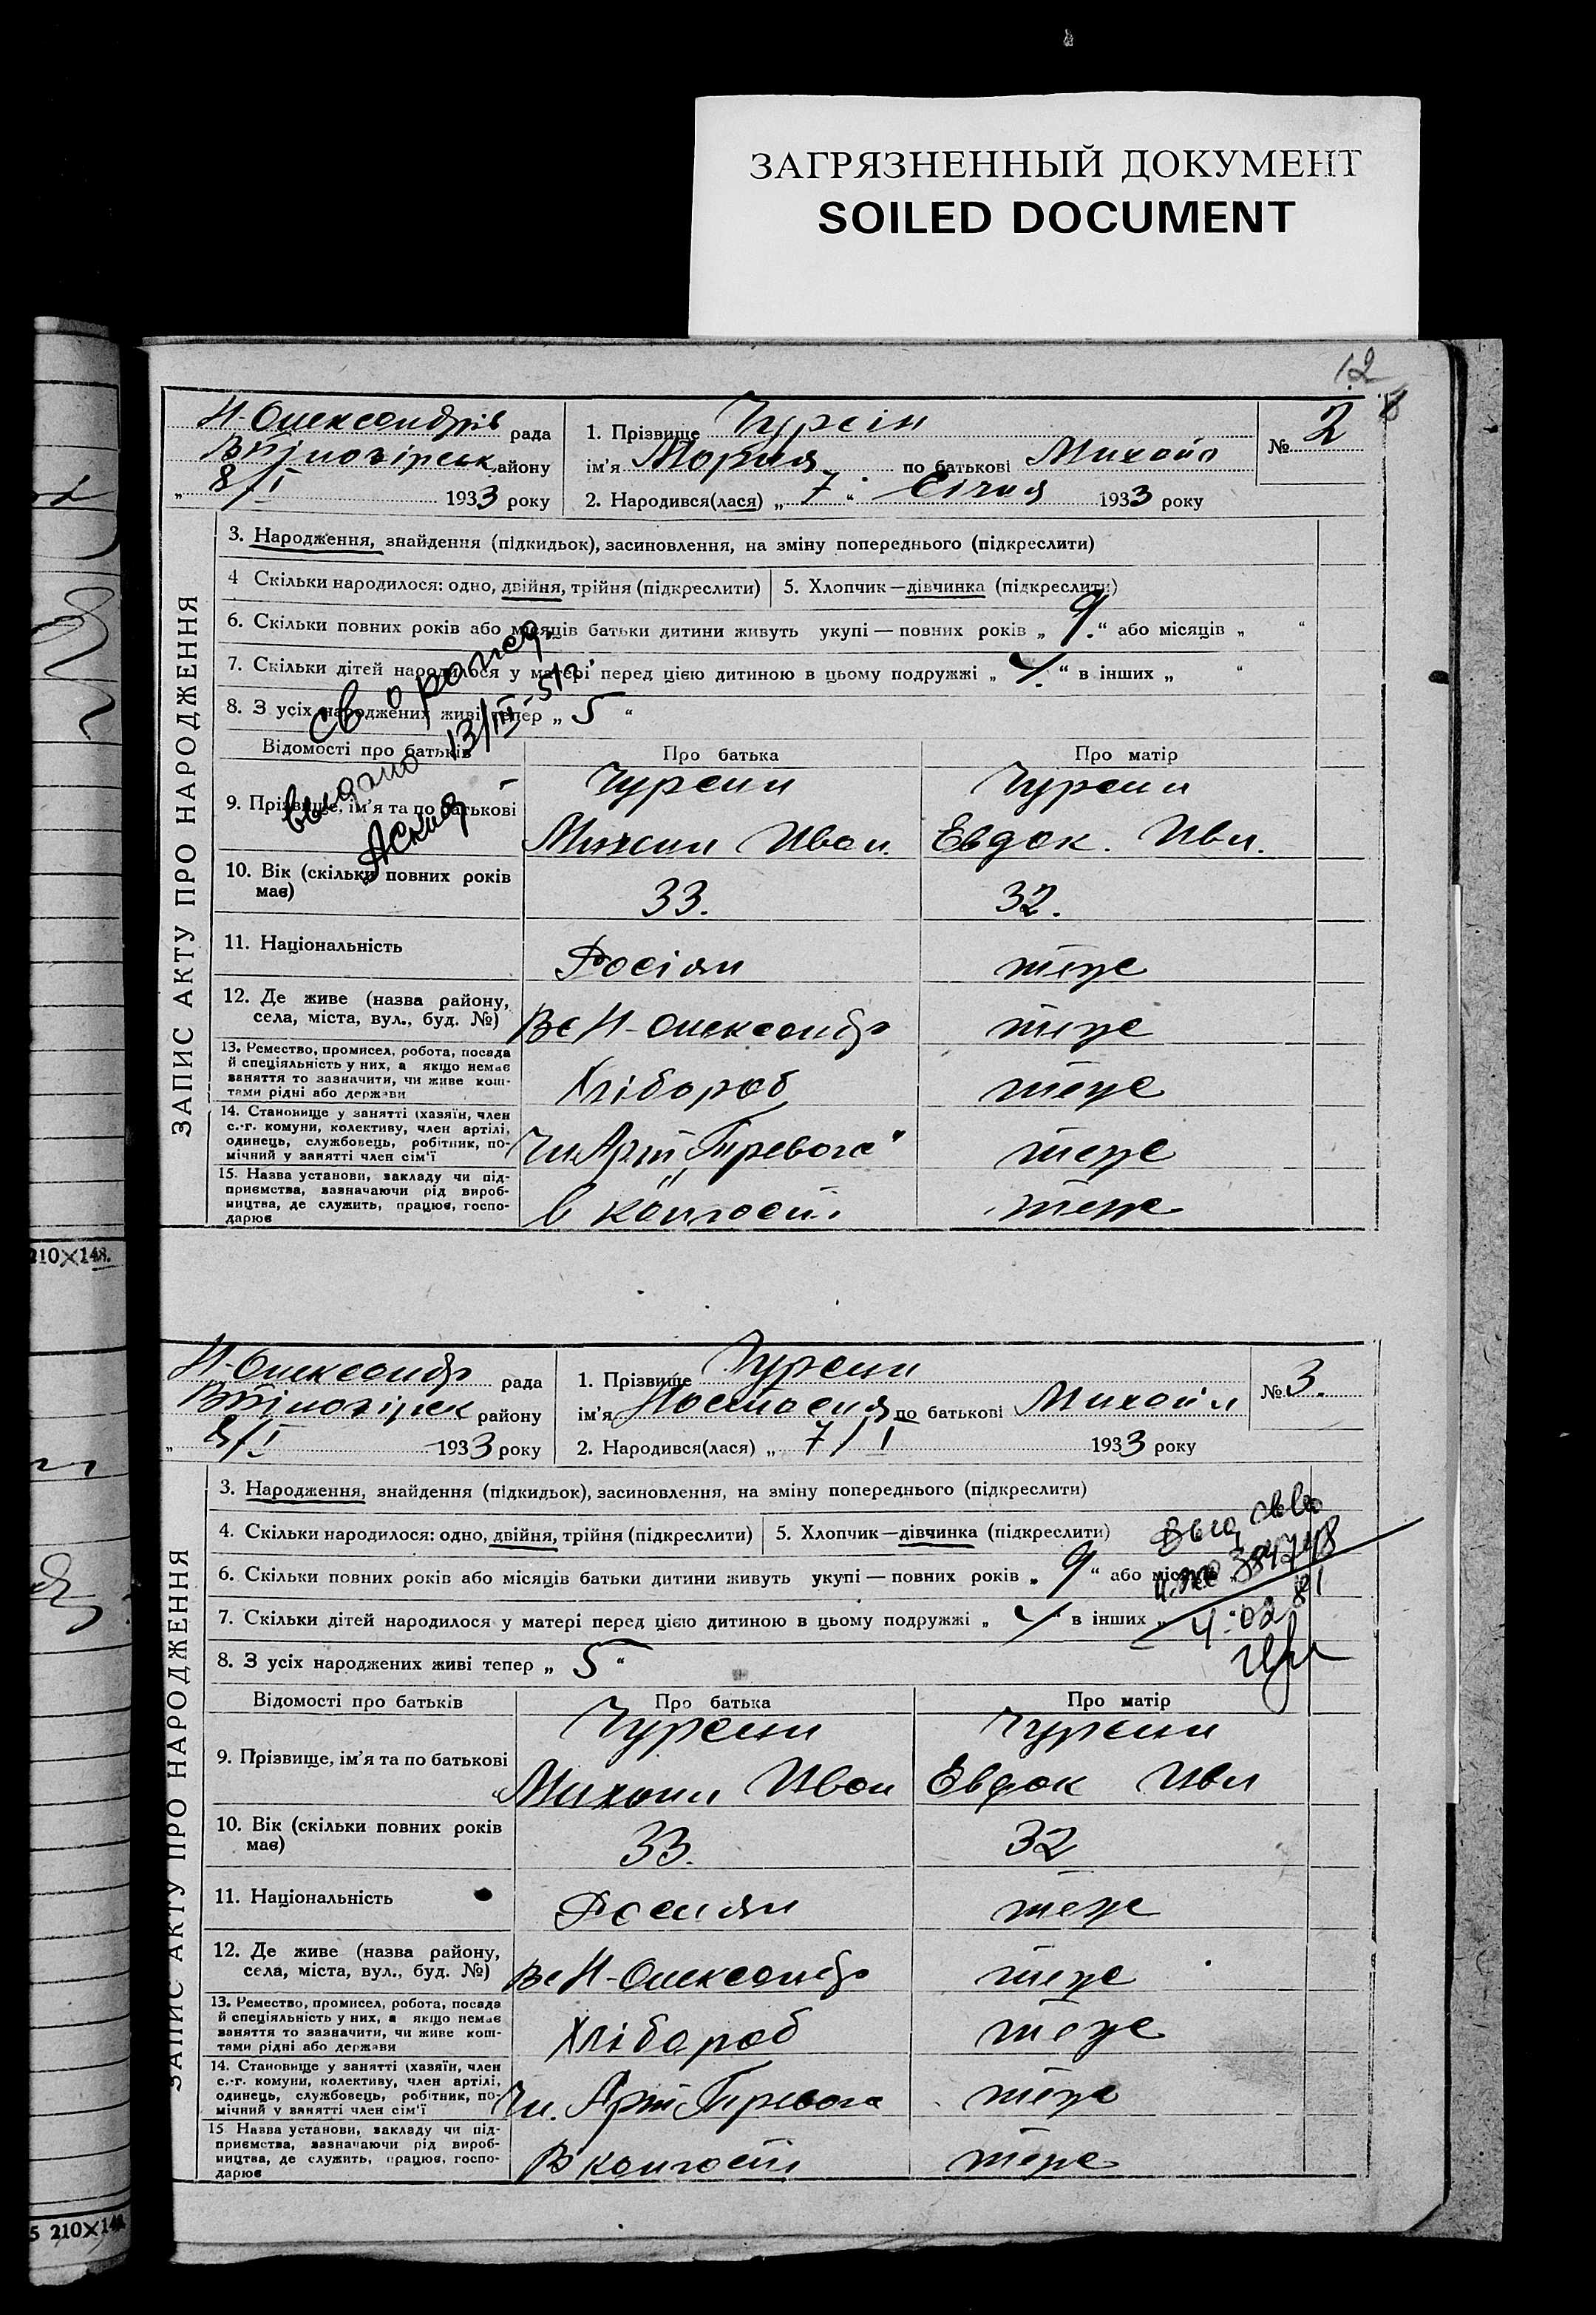 ЗАГРЯЗНЕННЫЙ ДОКУМЕНТ
SOILED DOCUMENT
12
Н-Олександрів рада
району
8/I 1933 року
1. Прізвище Чурсін
ім’я Мария по батькові Михайл
2. Народився(лася) „ 7 “ Січня 1933 року
№ 2
ЗАПИС АКТУ ПРО НАРОДЖЕННЯ
3. Народження, знайдення (підкидьок), засиновлення, на зміну попереднього (підкреслити)
4 Скільки народилося: одно, двійня, трійня (підкреслити) 5. Хлопчик—дівчинка (підкреслити)
6. Скільки повних років або місяців батьки дитини живуть укупі — повних років „ 9 “ або місяців „ “
7. Скільки дітей народилося у матері перед цією дитиною в цьому подружжі „ 4 “ в інших „ “
8. З усіх народжених живі тепер „ 5 “
св о рожд.
выдано 13/III-51 г.
Відомості про батьків Про батька Про матір
Чурсин Чурсин
9. Прізвище, ім’я та по батькові
Михаил Иван. Евдок. Ивн.
10. Вік (скільки повних років має) 33. 32.
11. Національність Росіян теже
12. Де живе (назва району, села, міста, вул., буд. №) Вс Н-Олександр теже
13. Ремество, промисел, робота, посада й спеціяльність у них, а якщо немає заняття то зазначити, чи живе коштами рідні або держави Хлібороб теже
14. Становище у занятті (хазяїн, член с.-г. комуни, колективу, член артілі, одинець, службовець, робітник, помічний у занятті член сім’ї Чл. Арт „Тревога“ теже
15. Назва установи, закладу чи підприємства, зазначаючи рід виробництва, де служить, працює, господарює в колгоспі теже
210×148.
Н-Олександр рада
району
8/I 1933 року
1. Прізвище Чурсин
ім’я Настасия по батькові Михайл
2. Народився(лася) „ 7/I 1933 року
№ 3.
ЗАПИС АКТУ ПРО НАРОДЖЕННЯ
3. Народження, знайдення (підкидьок), засиновлення, на зміну попереднього (підкреслити)
4. Скільки народилося: одно, двійня, трійня (підкреслити) 5. Хлопчик—дівчинка (підкреслити)
6. Скільки повних років або місяців батьки дитини живуть укупі — повних років „ 9 “ або місяців
7. Скільки дітей народилося у матері перед цією дитиною в цьому подружжі „ 4 “ в інших „
8. З усіх народжених живі тепер „ 5 “
Выд св-во
384748
4.02 81
Відомості про батьків Про батька Про матір
Чурсин Чурсин
9. Прізвище, ім’я та по батькові
Михаил Иван Евдок Ивн
10. Вік (скільки повних років має) 33. 32
11. Національність Росиян теже
12. Де живе (назва району, села, міста, вул., буд. №) Вс Н-Олександр теже
13. Ремество, промисел, робота, посада й спеціяльність у них, а якщо немає заняття то зазначити, чи живе коштами рідні або держави Хлібороб теже
14. Становище у занятті (хазяїн, член с.-г. комуни, колективу, член артілі, одинець, службовець, робітник, помічний у занятті член сім’ї Чл. Арт Тревога теже
15 Назва установи, закладу чи підприємства, зазначаючи рід виробництва, де служить, працює, господарює В колгоспі теже
5 210×148